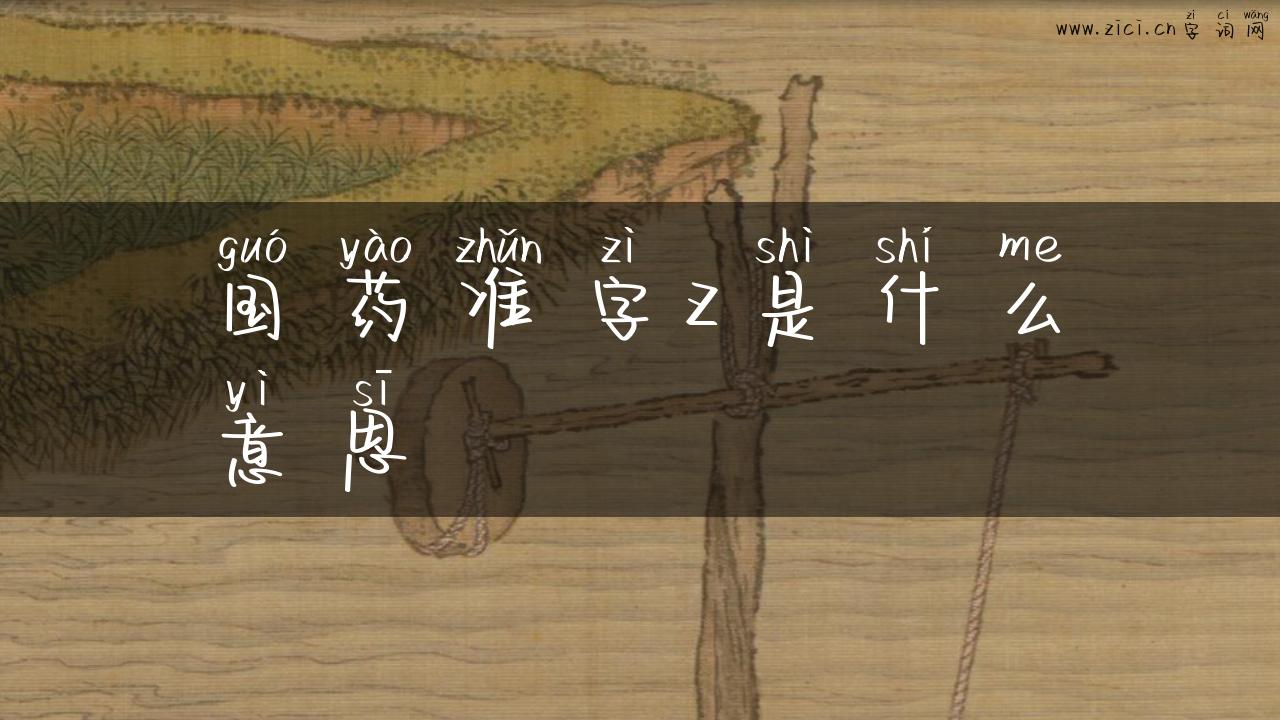 zì cí wǎng
www.zici.cn字词网
guó yào zhǔn zì shì shí me
国药准字Z是什么
yì sī
意思